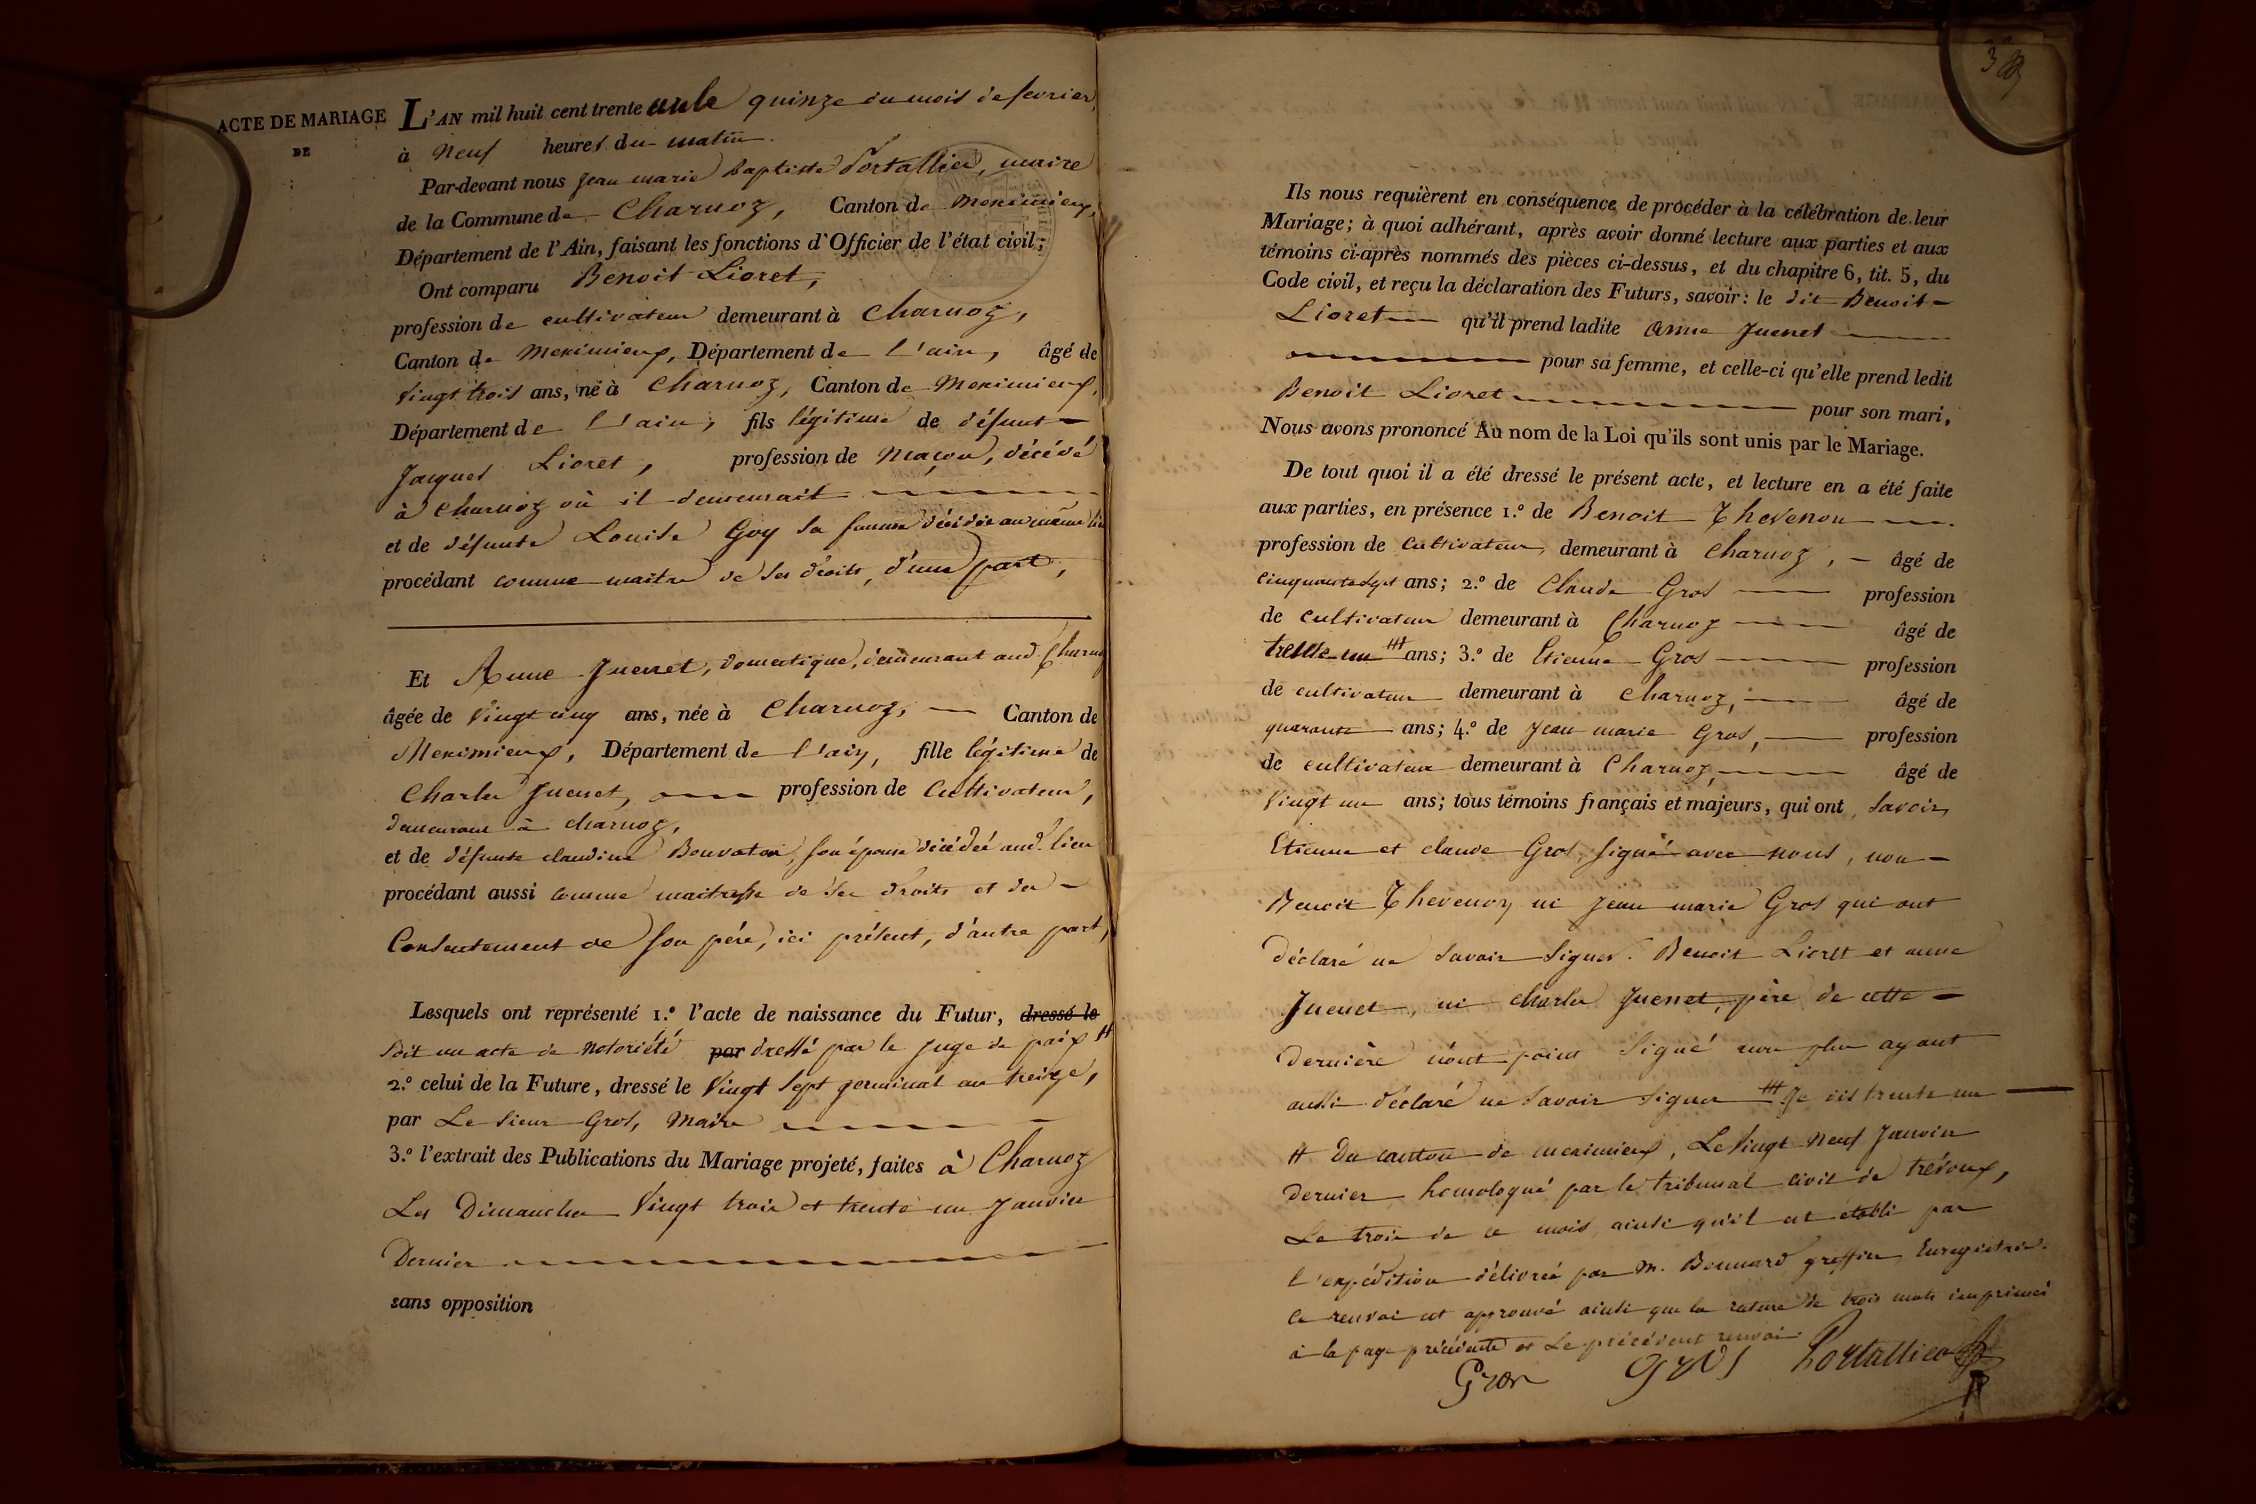 ACTE DE MARIAGE
DE
L'AN mil huit cent trente un le quinze du mois de fevrier,
à Neuf heures du matin.
Par-devant nous jean marie Baptiste Portallier, maire
de la Commune de Charnoz, Canton de Meximieux,
Département de l'Ain, faisant les fonctions d'Officier de l'état civil;
Ont comparu Benoit Lioret,
profession de cultivateur demeurant à Charnoz,
Canton de Meximieux, Département de l'ain, âgé de
vingt trois ans, né à Charnoz, Canton de Meximieux,
Département de l'ain, fils légitime de défunt
Jacques Lioret, profession de Maçon, décédé
à Charnoz où il demeurait
et de défunte Louise Goy sa femme décédée au même lieu
procédant comme maitre de ses droits, d'une part,
Et Anne Juenet, domestique, demeurant aud. Charnoz
âgée de Vingt cinq ans, née à Charnoz, Canton de
Meximieux, Département de l'ain, fille légitime de
Charles Juenet, profession de Cultivateur,
demeurant à charnoz,
et de défunte claudine Bouvatou, son épouse décédée aud. lieu
procédant aussi comme maitresse de ses droits et du
Consentement de son père, ici présent, d'autre part,
Lesquels ont représenté 1.º l'acte de naissance du Futur, dressé le
soit un acte de Notoriété par dressé par le juge de paix #
2.º celui de la Future, dressé le Vingt Sept germinal an treize,
par Le Sieur Gros, Maire
3.º l'extrait des Publications du Mariage projeté, faites à Charnoz
Les Dimanches Vingt trois et trente un Janvier
Dernier
sans opposition
Ils nous requièrent en conséquence de procéder à la célébration de leur
Mariage; à quoi adhérant, après avoir donné lecture aux parties et aux
témoins ci-après nommés des pièces ci-dessus, et du chapitre 6, tit. 5, du
Code civil, et reçu la déclaration des Futurs, savoir: le dit Benoit
Lioret qu'il prend ladite anne Juenet
pour sa femme, et celle-ci qu'elle prend ledit
Benoit Lioret pour son mari,
Nous avons prononcé Au nom de la Loi qu'ils sont unis par le Mariage.
De tout quoi il a été dressé le présent acte, et lecture en a été faite
aux parties, en présence 1.º de Benoit Thevenon
profession de Cultivateur demeurant à Charnoz, âgé de
cinquante sept ans; 2.º de Claude Gros profession
de Cultivateur demeurant à Charnoz âgé de
trente un ans; 3.º de Etienne Gros profession
de cultivateur demeurant à Charnoz, âgé de
quarante ans; 4.º de Jean marie Gros, profession
de cultivateur demeurant à Charnoz, âgé de
Vingt un ans; tous témoins français et majeurs, qui ont, Savoir
Etienne et claude Gros, signé avec nous, non
Benoit Thevenon ni Jean marie Gros qui ont
déclaré ne Savoir Signer. Benoit Lioret et anne
Juenet, ni Charles Juenet, père de cette
dernière n'ont point Signé non plus ayant
aussi déclaré ne Savoir Signer # Je dis trente un
# Du canton de meximieux, Le Vingt Neuf Janvier
dernier homologué par le tribunal civil de trévoux,
Le trois de ce mois ainsi qu'il est établi par
l'expédition délivrée par M. Bonnard greffier Enregistrée.
Ce renvoi est approuvé ainsi que la rature de trois mots imprimés
à la page précédente et Le précédent renvoi.
Gros gros Portallier